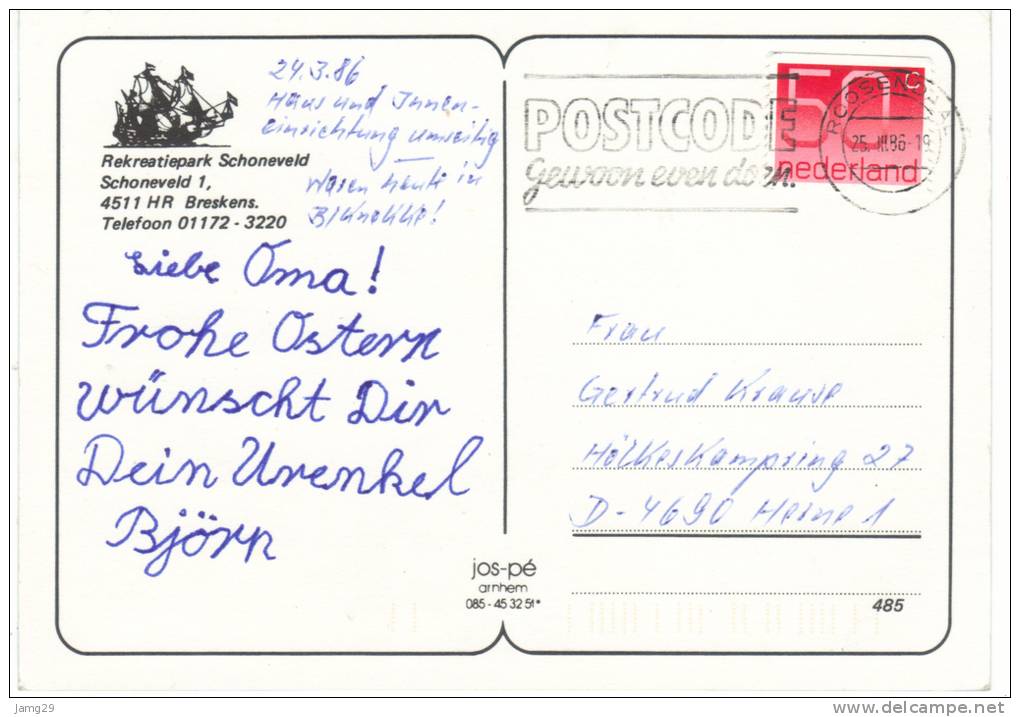 24.3.86
Haus und Innen-
einrichtung umseitig
Waren heute in
B/Knokke!
Rekreatiepark Schoneveld
Schoneveld 1,
4511 HR Breskens.
Telefoon 01172 - 3220
Liebe Oma!
Frohe Ostern
wünscht Dir
Dein Urenkel
Björn
POSTCODE
Gewoon even doen.
50 c
nederland
ROOSENDAAL
25. III.86-19
Frau
Gertrud Krause
Hölkeskampring 27
D-4690 Herne 1
jos-pé
arnhem
085-45 32 51*
485
Jamg29
www.delcampe.net